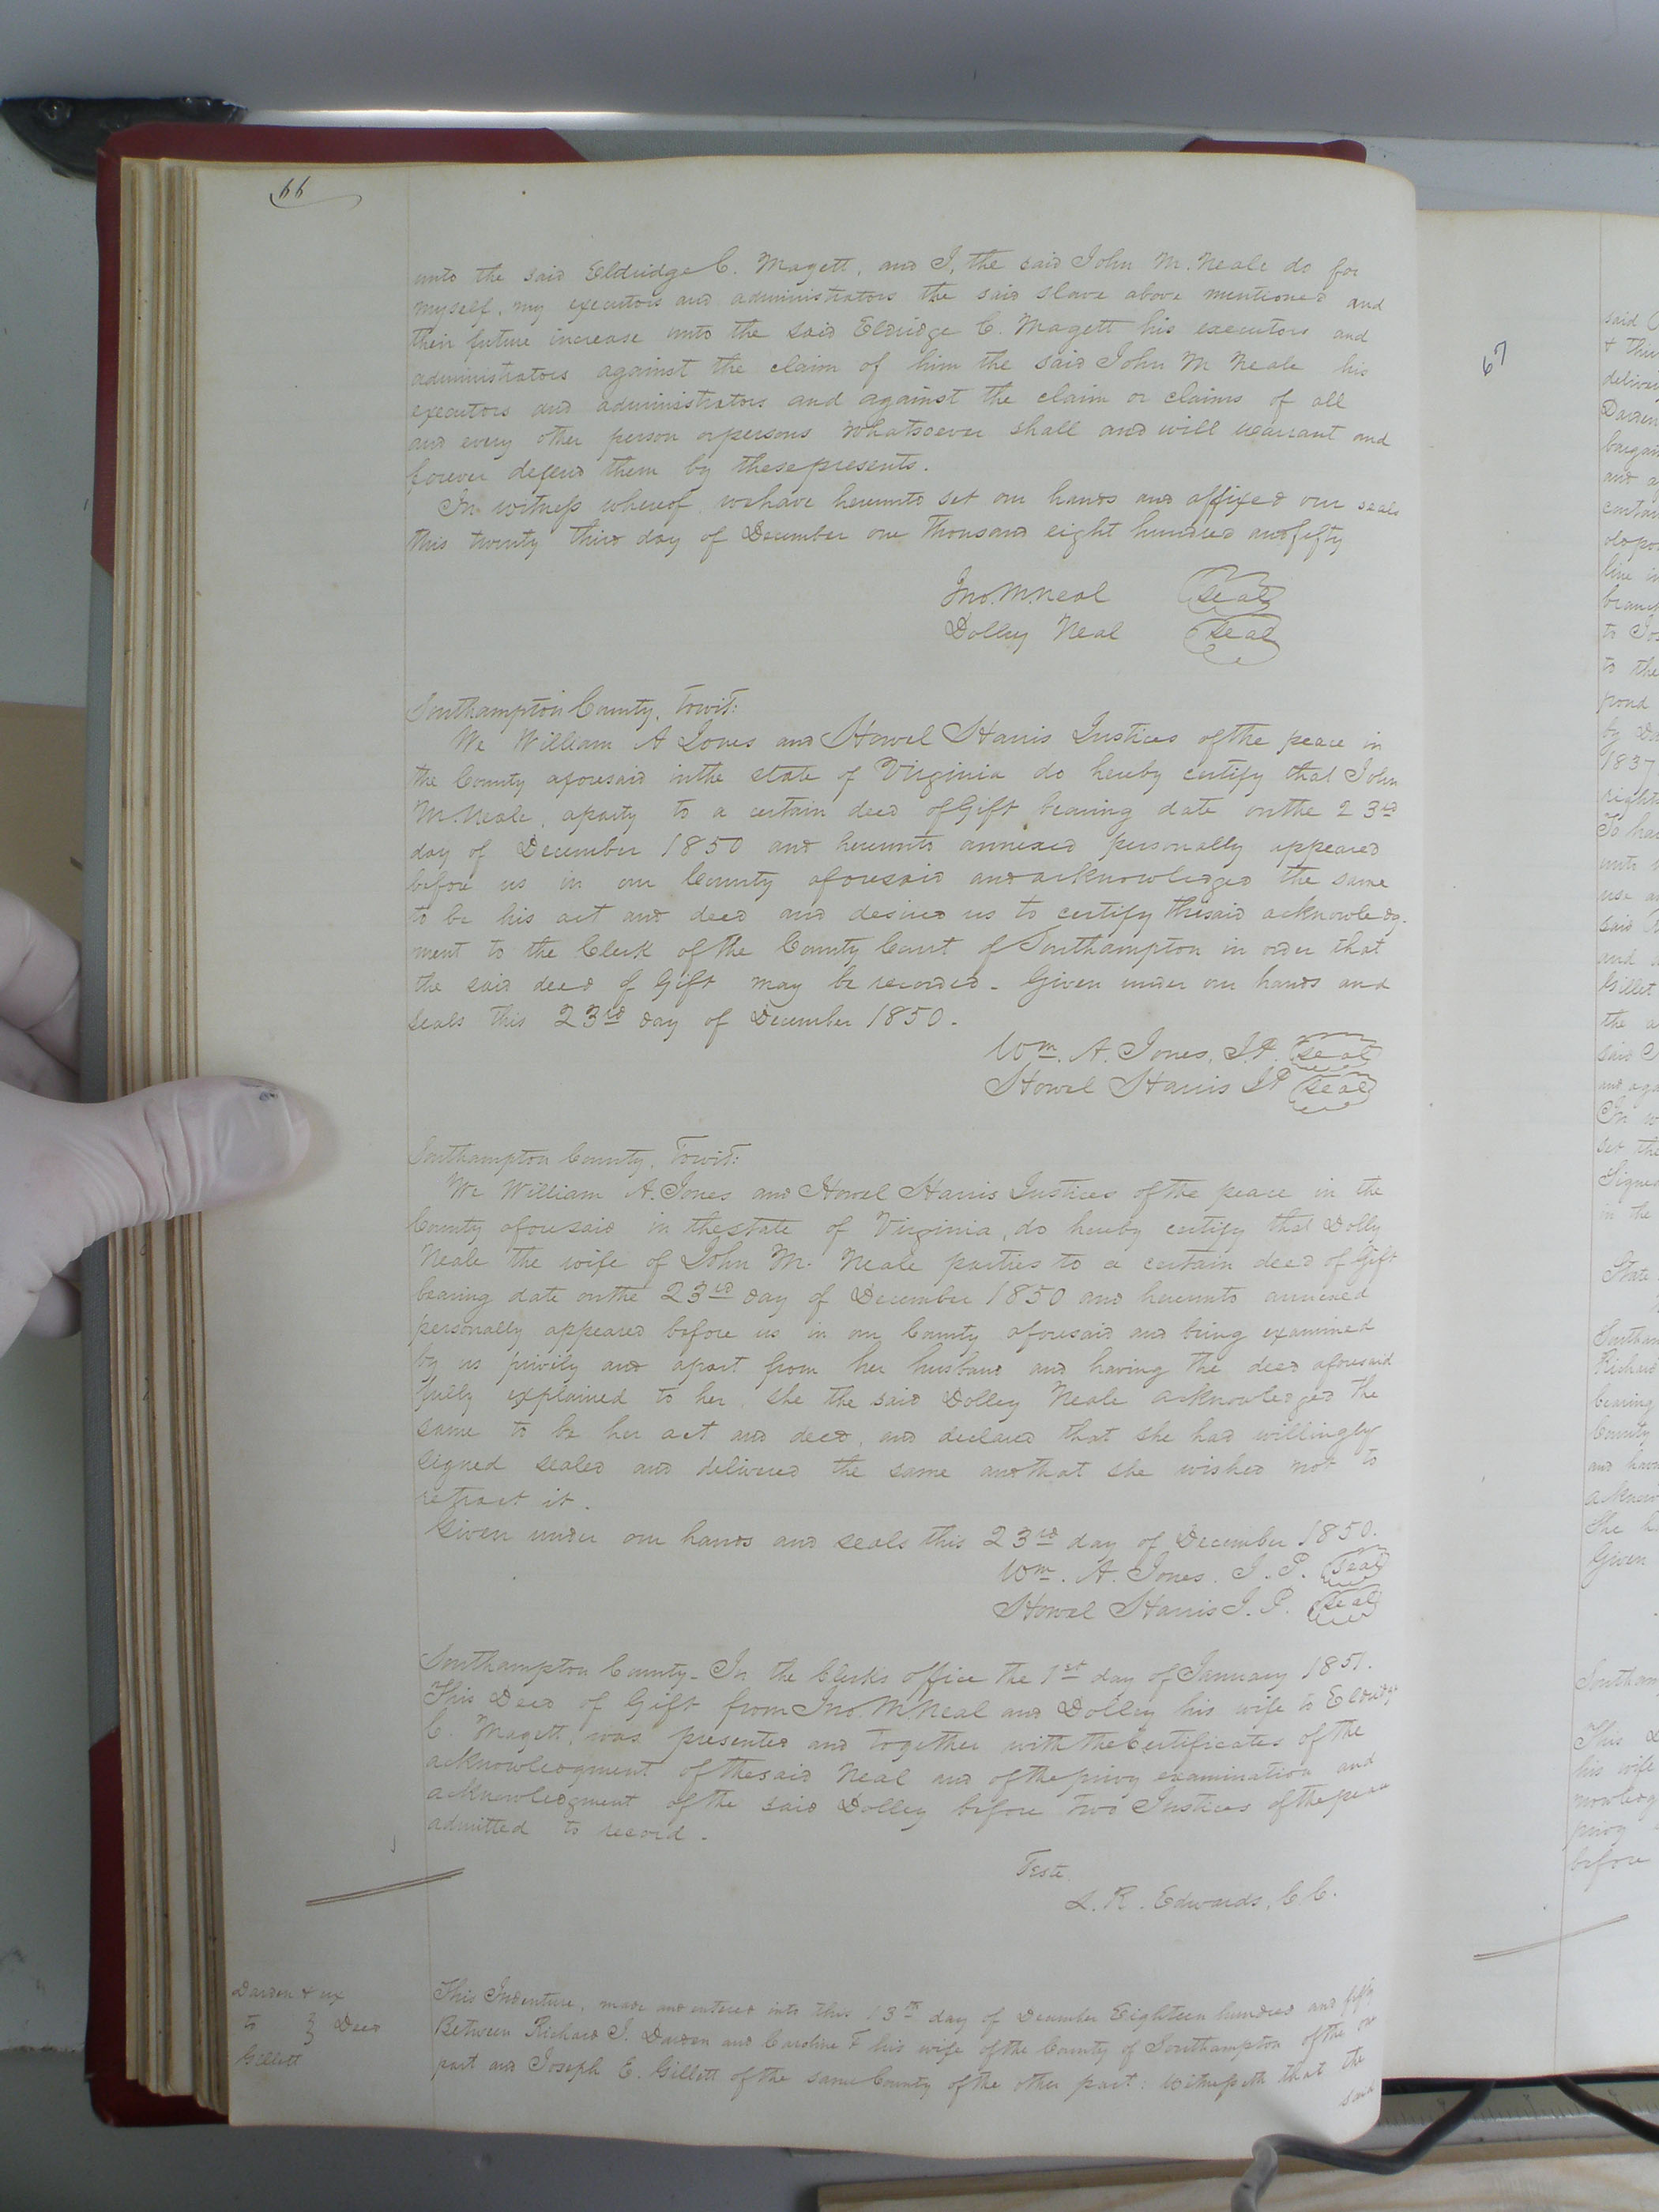 66
unto the said Eldridge C. Magett, and I, the said John M. Neale do for
myself, my executors and administrators the said slave above mentioned and
their future increase unto the said Eldridge C. Magett his executors and
administrators against the claim of him the said John M Neale his
executors and administrators and against the claim or claims of all
and every other person or persons whatsoever shall and will warrant and
forever defend them by these presents.
In witness whereof we have hereunto set our hands and affixed our seals
this twenty third day of December one thousand eight hundred and fifty
Jno. M. Neal Seal
Dolley Neal Seal
Southampton County, Towit:
We William A Jones and Howel Harris Justices of the peace in
the County aforesaid in the state of Virginia do hereby certify that John
M. Neale, a party to a certain deed of Gift bearing date on the 23rd
day of December 1850 and hereunto annexed personally appeared
before us in our County aforesaid and acknowledged the same
to be his act and deed and desired us to certify the said acknowledg-
ment to the Clerk of the County Court of Southampton in order that
the said deed of Gift may be recorded. Given under our hands and
seals this 23rd day of December 1850.
Wm. A. Jones, J.P. Seal
Howel Harris JP Seal
Southampton County, Towit:
We William A. Jones and Howel Harris Justices of the peace in the
County aforesaid in the state of Virginia, do hereby certify that Dolly
Neale the wife of John M. Neale parties to a certain deed of Gift
bearing date on the 23rd day of December 1850 and hereunto annexed
personally appeared before us in our County aforesaid and being examined
by us privily and apart from her husband and having the deed aforesaid
fully explained to her, she the said Dolley Neale acknowledged the
same to be her act and deed, and declared that she had willingly
signed sealed and delivered the same and that she wished not to
retract it.
Given under our hands and seals this 23rd day of December 1850.
Wm. A. Jones. J. P. Seal
Howel Harris J. P. Seal
Southampton County - In the Clerk's office the 1st day of January 1851.
This Deed of Gift from Jno. M. Neal and Dolley his wife to Eldridge
C. Magett, was presented and together with the Certificates of the
acknowledgment of the said Neal and of the privy examination and
acknowledgment of the said Dolley before two Justices of the peace
admitted to record.
Teste.
L. R. Edwards, C C.
Darden & ux
to } Deed
Gillett
This Indenture, made and entered into this 13th day of December Eighteen hundred and fifty
Between Richard J. Darden and Caroline F his wife of the County of Southampton of the one
part and Joseph E. Gillett of the same County of the other part: Witnesseth that the
said
67
said
deliver
Darden
bargain
and
line in
branch
to the
pond
1837
right
To have
unto
use
said
and
Gillet
the
said
Signed
in the
State
Southam
Richard
bearing
County
and
acknow
She
Given
Southam
This
his wife
privy
before